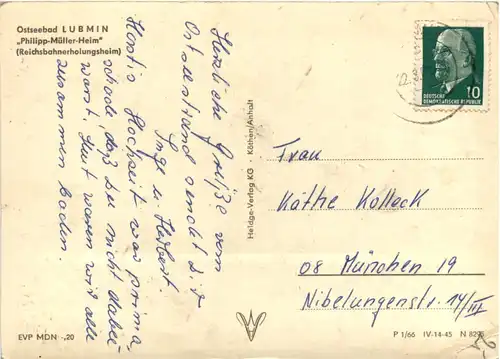 Ostseebad LUBMIN
„Philipp-Müller-Heim"
(Reichsbahnerholungsheim)
Herzliche Grüße vom
Ostseestrand sendet Dir
Inge u. Herbert.
Horsts Hochzeit war prima,
schade, daß Du nicht dabei
warst. Heut waren wir alle
zusammen baden.
Heldge-Verlag KG - Köthen/Anhalt
DEUTSCHE
DEMOKRATISCHE REPUBLIK
10
Frau
Käthe Kolleck
08 München 19
Nibelungenstr. 14/III
EVP MDN -,20
P 1/66 IV-14-45 N 8295